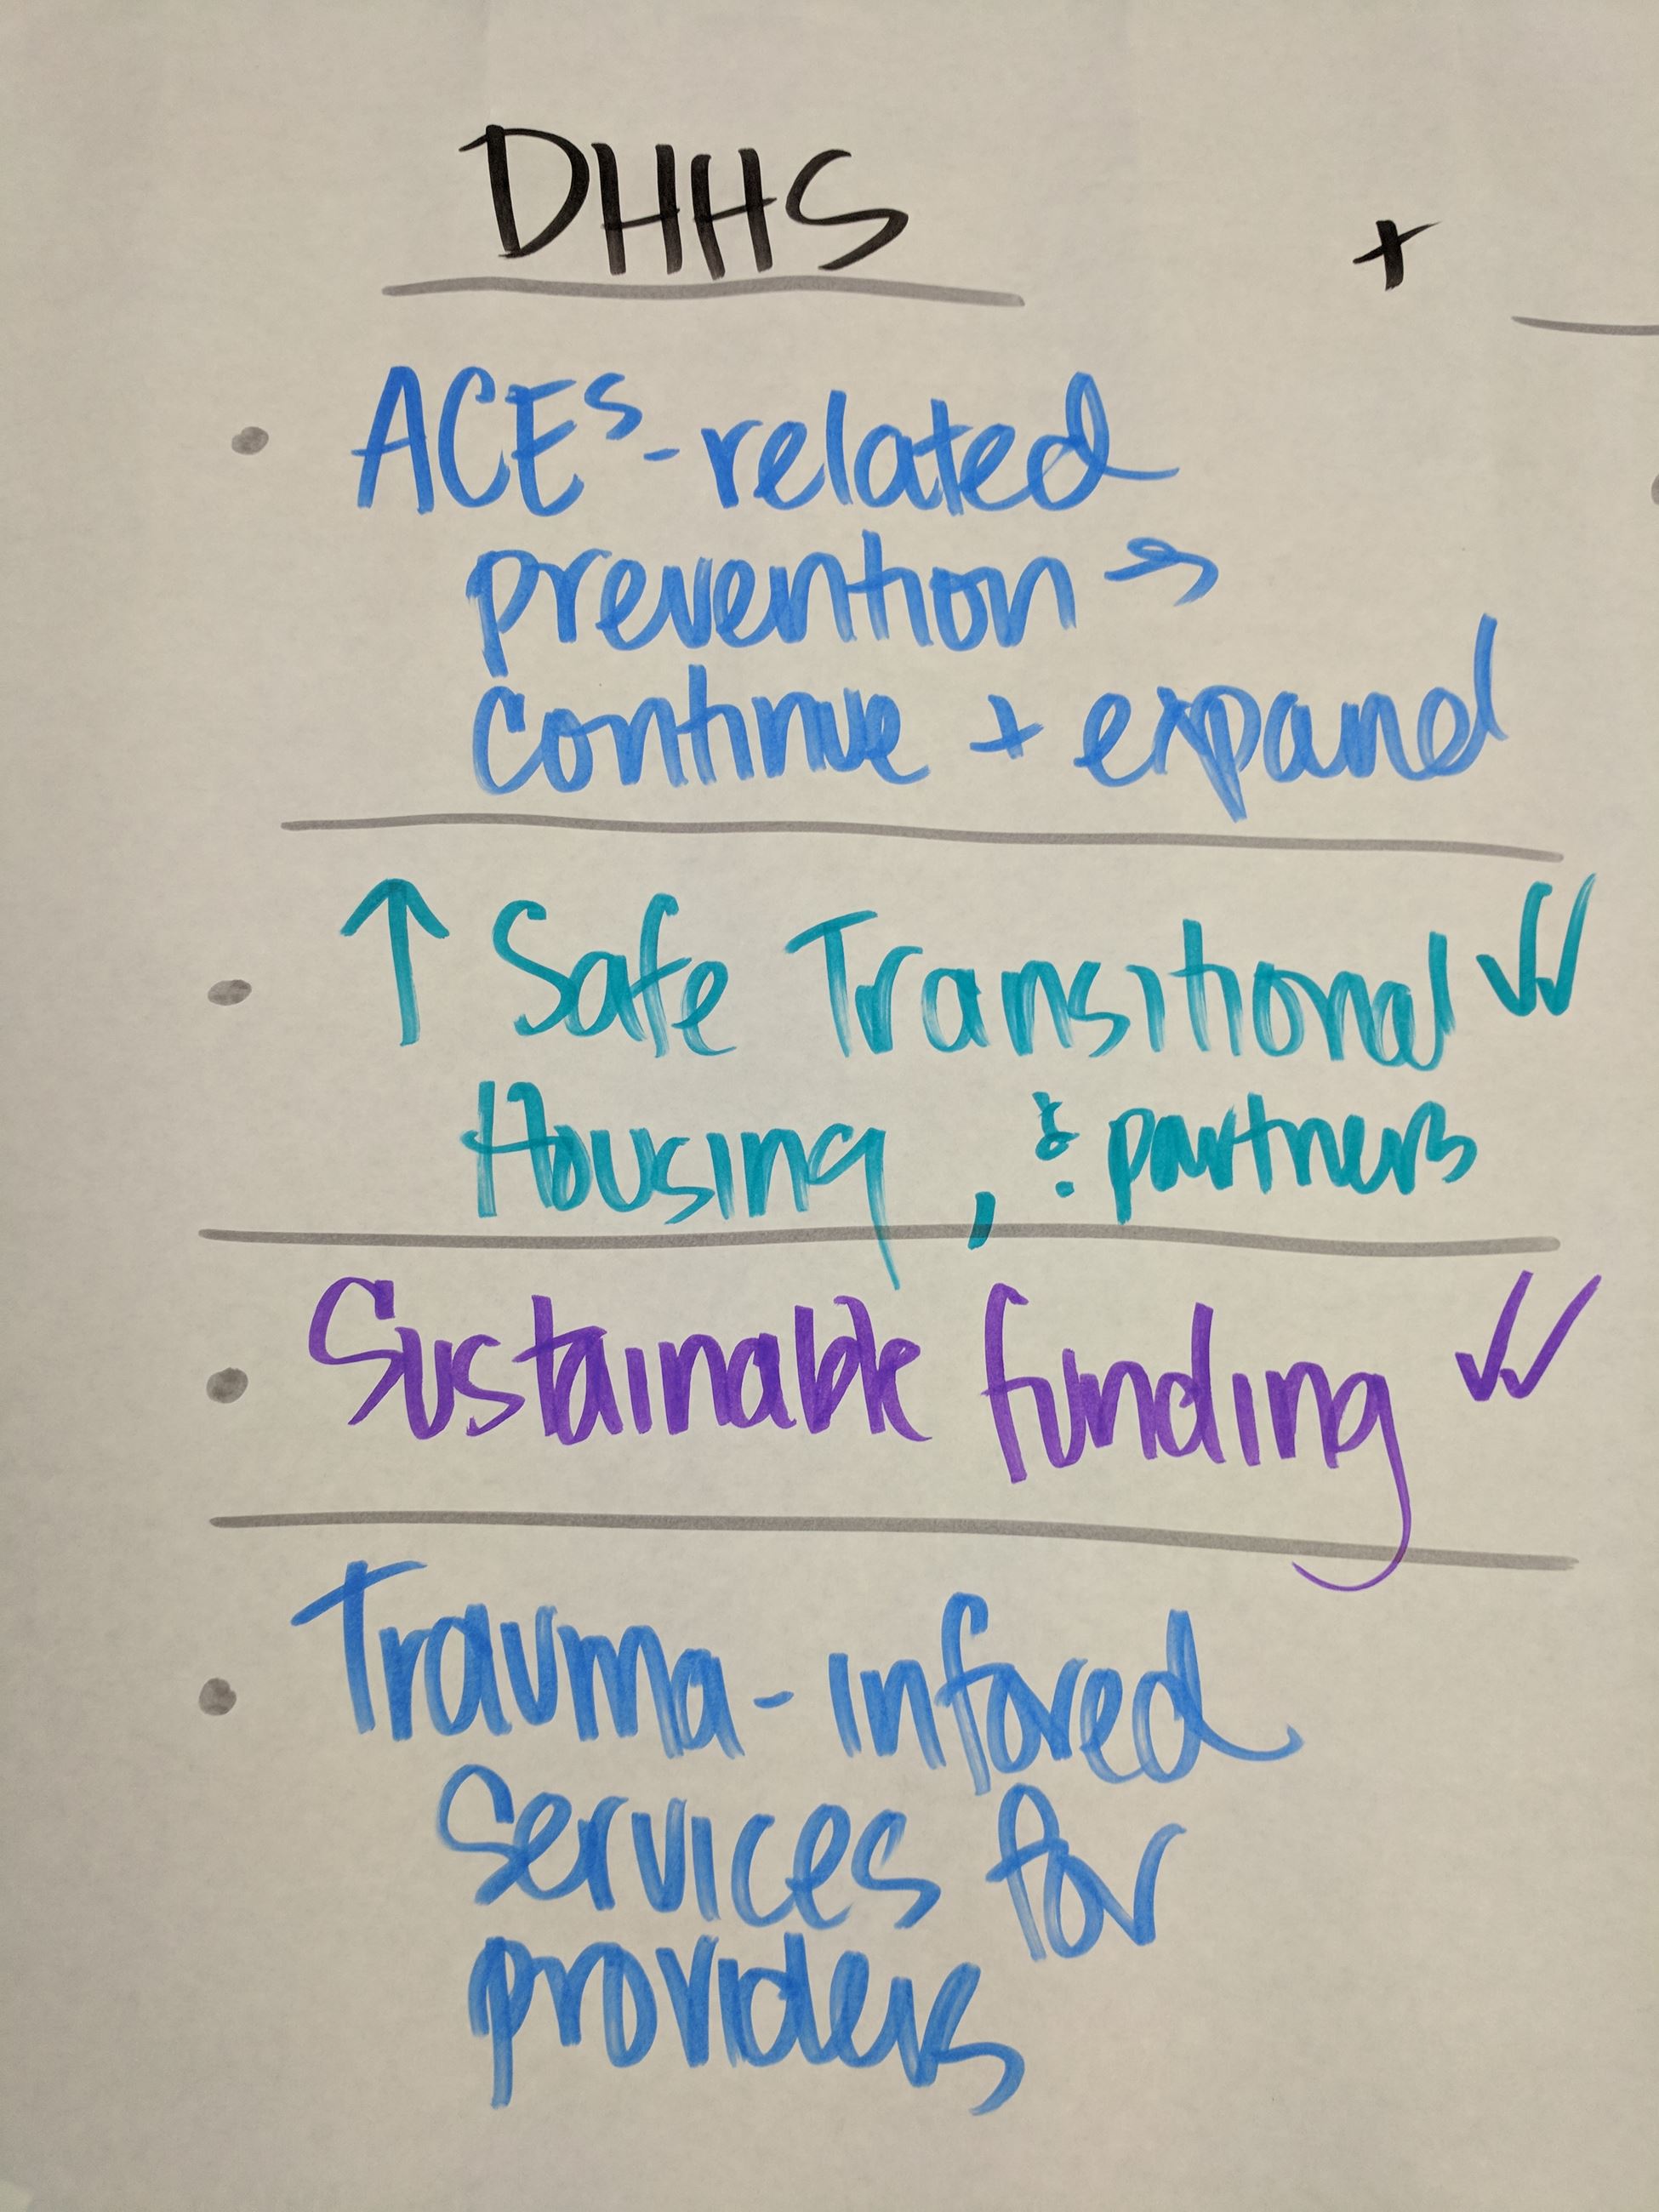 DHHS +
• ACEs-related
prevention →
continue + expand
• ↑ Safe Transitional ✓✓
Housing, & partners
• Sustainable funding ✓✓
• Trauma-infored
services for
providers